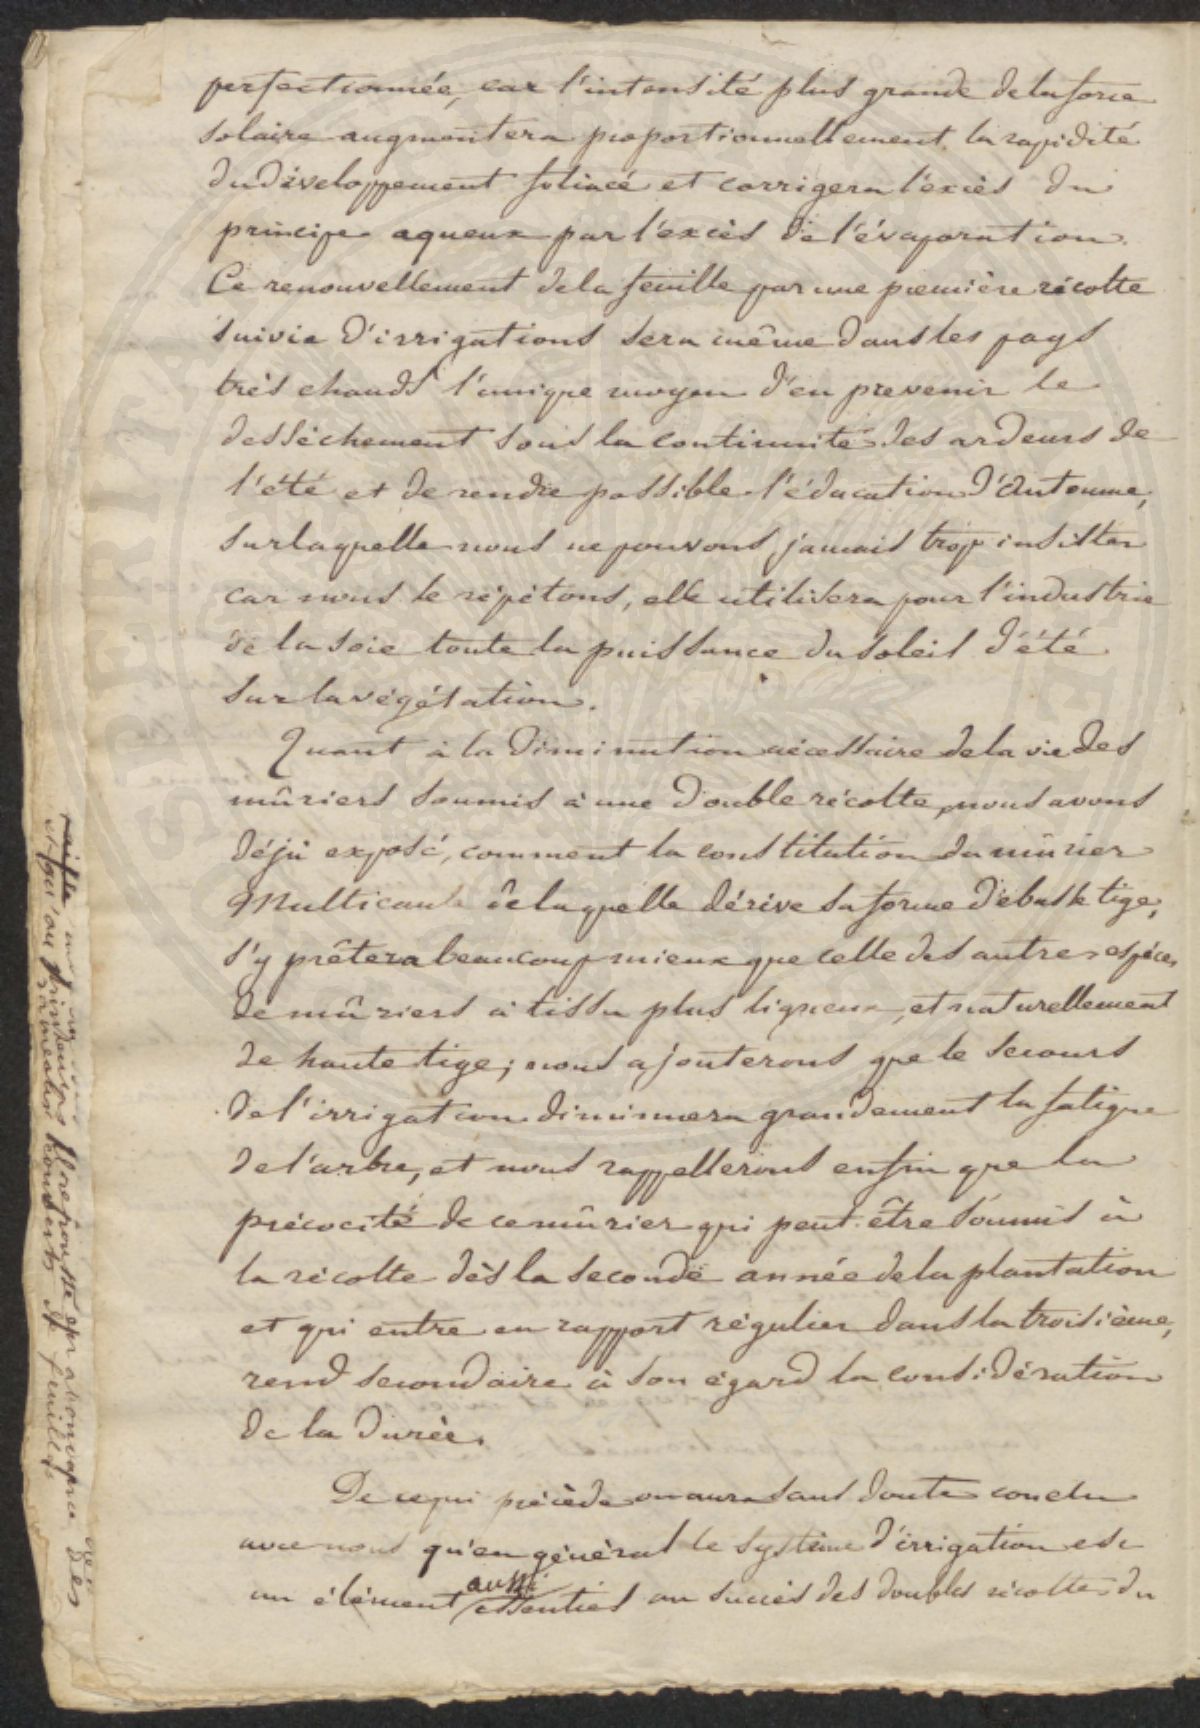 perfectionnée, car l'intensité plus grande de la force
solaire augmentera proportionnellement la rapidité
du développement foliacé et corrigera l'excès du
principe aqueux par l'excès de l'évaporation.
Ce renouvellement de la feuille par une première récolte
suivie d'irrigations sera même dans les pays
très chauds l'unique moyen d'en prevenir le
dessèchement sous la continuité des ardeurs de
l'été et de rendre possible l'éducation d'Automne,
sur laquelle nous ne pouvons jamais trop insister
car nous le répétons, elle utilisera pour l'industrie
de la soie toute la puissance du soleil d'été
sur la végétation.
Quant à la diminution nécessaire de la vie des
mûriers soumis à une double récolte, nous avons
déjà exposé, comment la constitution du mûrier
Multicaule de laquelle dérive sa forme de basse tige,
s'y prêtera beaucoup mieux que celle des autres espèces
de mûriers à tissu plus ligneux, et naturellement
de haute tige; nous ajouterons que le secours
de l'irrigation diminuera grandement la fatigue
de l'arbre, et nous rappellerons enfin que la
précocité de ce mûrier qui peut être soumis à
la récolte dès la seconde année de la plantation
et qui entre en rapport régulier dans la troisième,
rend secondaire à son égard la considération
de la durée.
De ce qui précède on aura sans doute conclu
avec nous qu'en général le système d'irrigation est
un élément aussi essentiel au succès des doubles récoltes du
et qu'au printemps il repousse
sarmentes couverts de feuilles